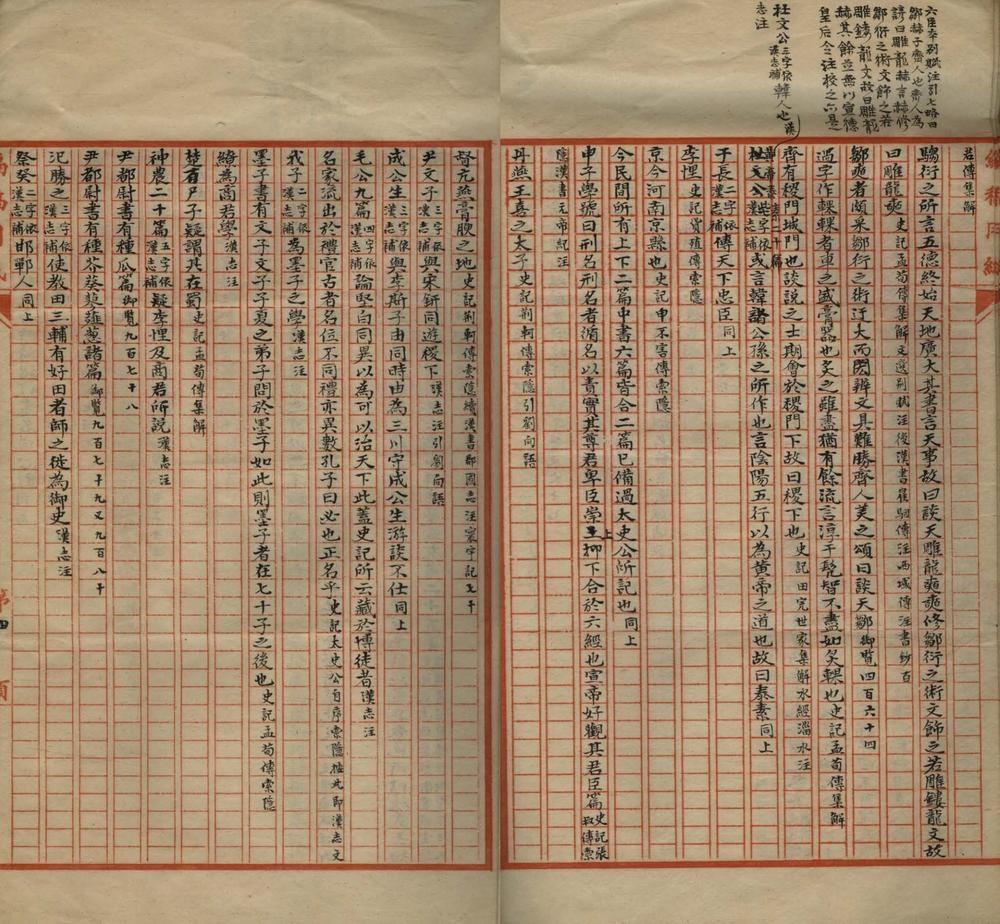 六臣本別賦注引七略曰
鄒赫子齊人也齊人為
諺曰雕龍赫言赫修
鄒衍之術文飾之若
雕鏤龍文故曰雕龍
赫其餘並無以宣德
皇后令注校之亦是
杜文公三字依漢志補韓人也漢
志注
若傳集解
騶衍之所言五德終始天地廣大其書言天事故曰談天雕龍奭奭修鄒衍之術文飾之若雕鏤龍文故
曰雕龍奭史記孟荀傳集解文選別賦注後漢書崔駰傳注西域傳注書鈔百
鄒奭者頗采鄒衍之術迂大而閎辨文具難勝齊人美之頌曰談天鄒御覽四百六十四
過字作輠輠者車之盛膏器也炙之雖盡猶有餘流言淳于髡智不盡如炙輠也史記孟荀傳集解
齊有稷門城門也談說之士期會於稷門下故曰稷下也史記田完世家集解水經淄水注
或言韓諸公孫之所作也言陰陽五行以為黃帝之道也故曰泰素同上
于長漢志補傳天下忠臣同上
李悝史記貨殖傳索隱
京今河南京縣也史記申不害傳索隱
今民間所有上下二篇中書六篇皆合二篇已備過太史公所記也同上
申子學號曰刑名刑名者循名以責實其尊君卑臣崇上抑下合於六經也宣帝好觀其君臣篇史記張叔傳索
隱漢書元帝紀注
丹燕王喜之太子史記荊軻傳索隱引劉向語
督亢燕膏腴之地史記荊軻傳索隱續漢書郡國志注寰宇記七十
尹文子三字依漢志補與宋鈃同遊稷下漢志注引劉向語
成公生三字依漢志補與李斯子由同時由為三川守成公生游談不仕同上
毛公九篇四字依漢志補論堅白同異以為可以治天下此蓋史記所云藏於博徒者漢志注
名家流出於禮官古者名位不同禮亦異數孔子曰必也正名乎史記太史公自序索隱按此即漢志文
我子二字依漢志補為墨子之學漢志注
墨子書有文子文子子夏之弟子問於墨子如此則墨子者在七十子之後也史記孟荀傳索隱
繞為高君學漢志注
楚有尸子疑謂其在蜀史記孟荀傳集解
神農二十篇五字依漢志補疑李悝及商君所說漢志注
尹都尉書有種瓜篇御覽九百七十八
尹都尉書有種芥葵蓼薤蔥諸篇御覽九百七十九又九百八十
氾勝之三字依漢志補使教田三輔有好田者師之徙為御史漢志注
祭癸二字依漢志補邯鄲人同上
第四
頁